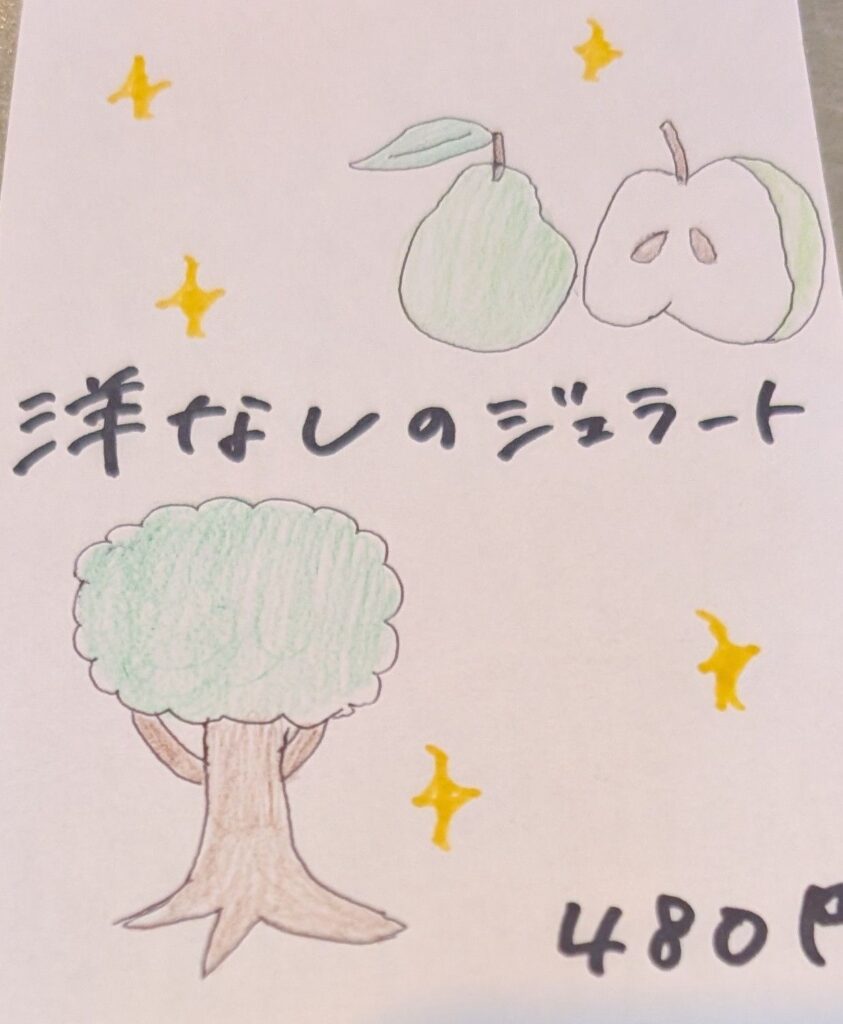 洋なしのジェラート
480円